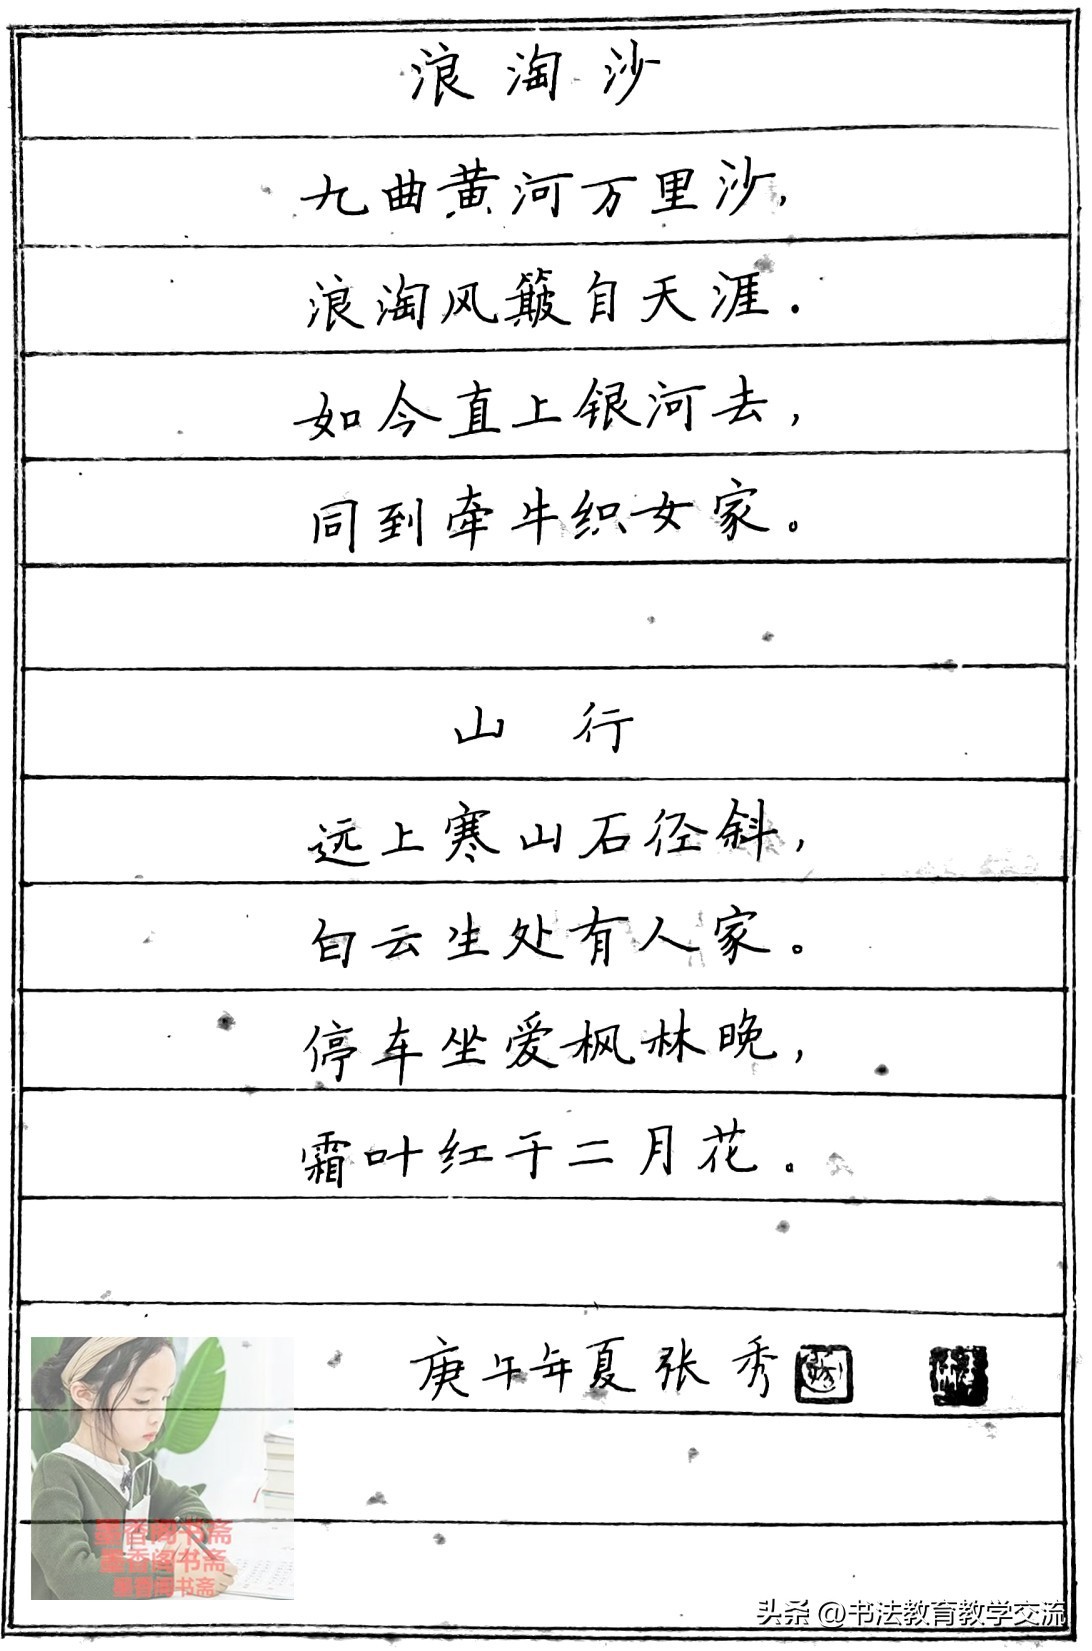 浪淘沙
九曲黄河万里沙,
浪淘风簸自天涯.
如今直上银河去,
同到牵牛织女家。
山行
远上寒山石径斜,
白云生处有人家。
停车坐爱枫林晚,
霜叶红于二月花。
庚午年夏张秀
墨香阁书斋
墨香阁书斋
墨香阁书斋
头条 @书法教育教学交流